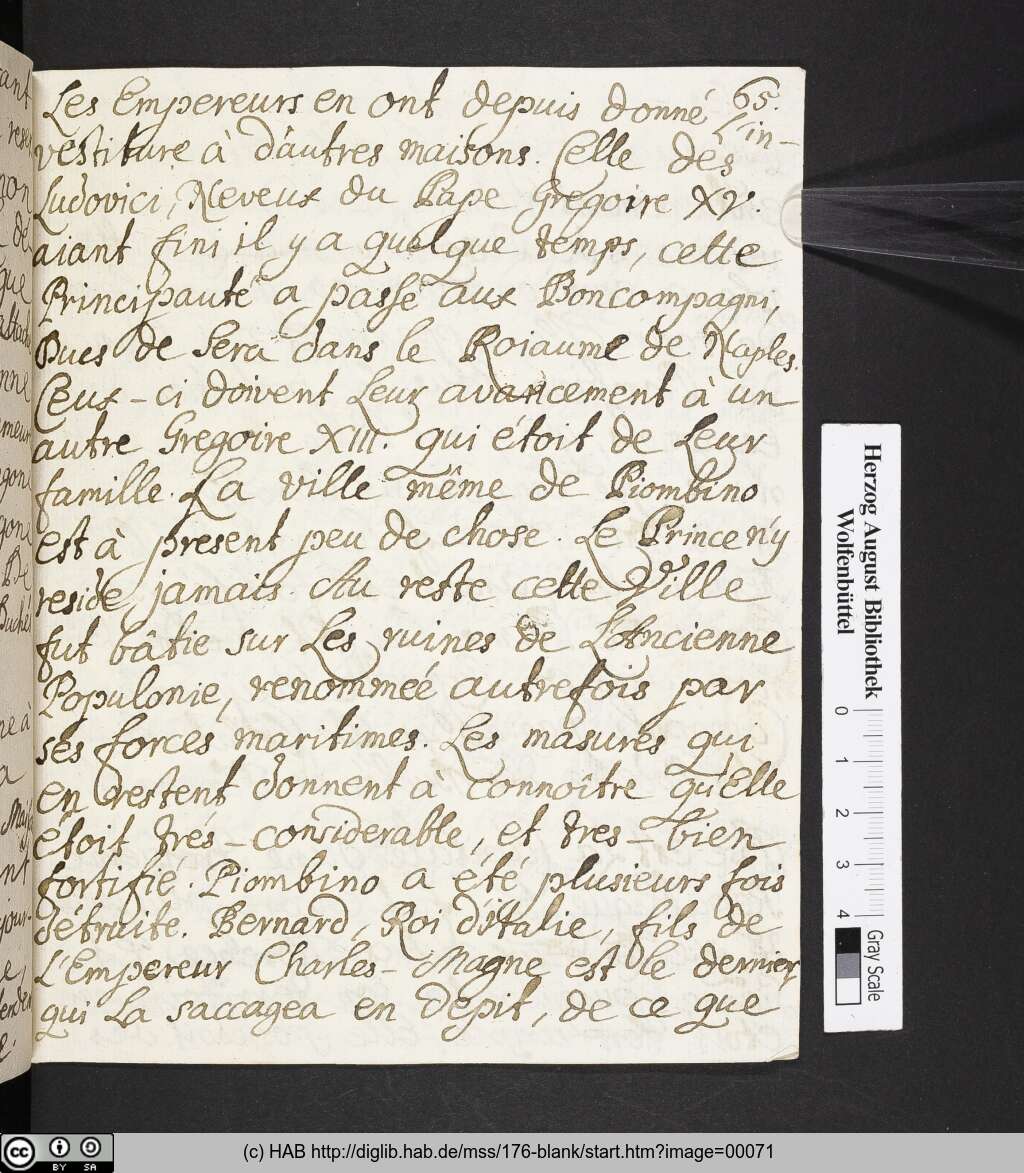 65.
Les Empereurs en ont depuis donné L'in-
vestiture à d'autres maisons. Celle dés
Ludovici, Neveux du Pape Gregoire XV.
aiant fini il y a quelque temps, cette
Principauté a passé aux Boncompagni,
Ducs de Sera dans le Roiaume de Naples.
Ceux-ci doivent Leur avancement à un
autre Gregoire XIII. qui étoit de Leur
famille. La ville même de Piombino
est à present peu de chose. Le Prince n'y
reside jamais. Au reste cette Ville
fut bâtie sur Les ruines de L'Ancienne
Populonie, renommeé autrefois par
ses forces maritimes. Les masures qui
en restent donnent à connoître qu'Elle
étoit trés-considerable, et tres-bien
fortifié. Piombino a été plusieurs fois
détruite. Bernard, Roi d'Italie, fils de
L'Empereur Charles-Magne est le dernier
qui La saccagea en depit, de ce que
Herzog August Bibliothek
Wolfenbüttel
0 1 2 3 4
Gray Scale
cc BY SA
(c) HAB http://diglib.hab.de/mss/176-blank/start.htm?image=00071